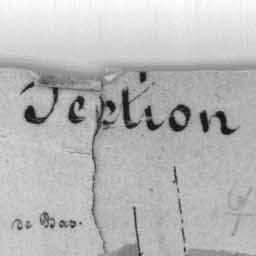 Section
de Bas.